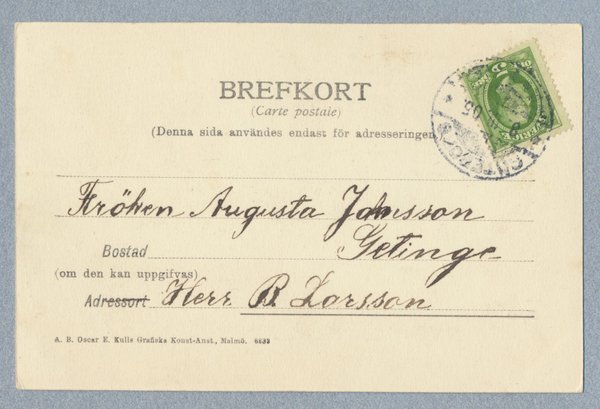 BREFKORT
(Carte postale)
(Denna sida användes endast för adresseringen
Fröken Augusta Johnsson
Bostad Getinge
(om den kan uppgifvas)
Adressort Herr B. Larsson
A. B. Oscar E. Kulls Grafiska Konst-Anst., Malmö. 6833
SVERIGE